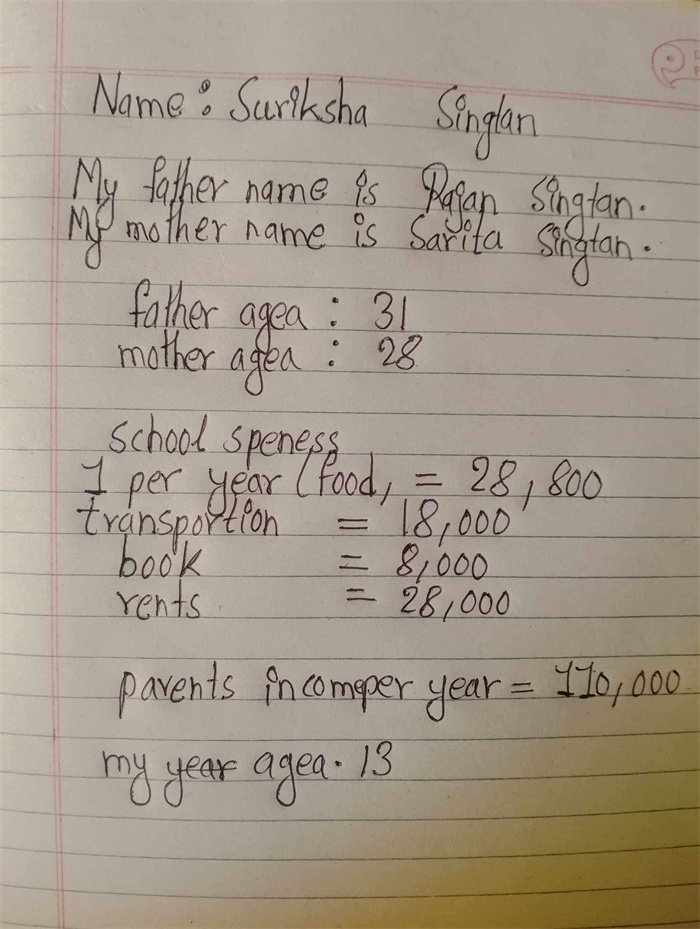 Name : Suriksha Singtan
My father name is Rajan Singtan.
My mother name is Sarita Singtan.
father agea : 31
mother agea : 28
school speness
1 per year (food, = 28,800
transportion = 18,000
book = 8,000
rents = 28,000
parents incomeper year = 110,000
my year agea. 13